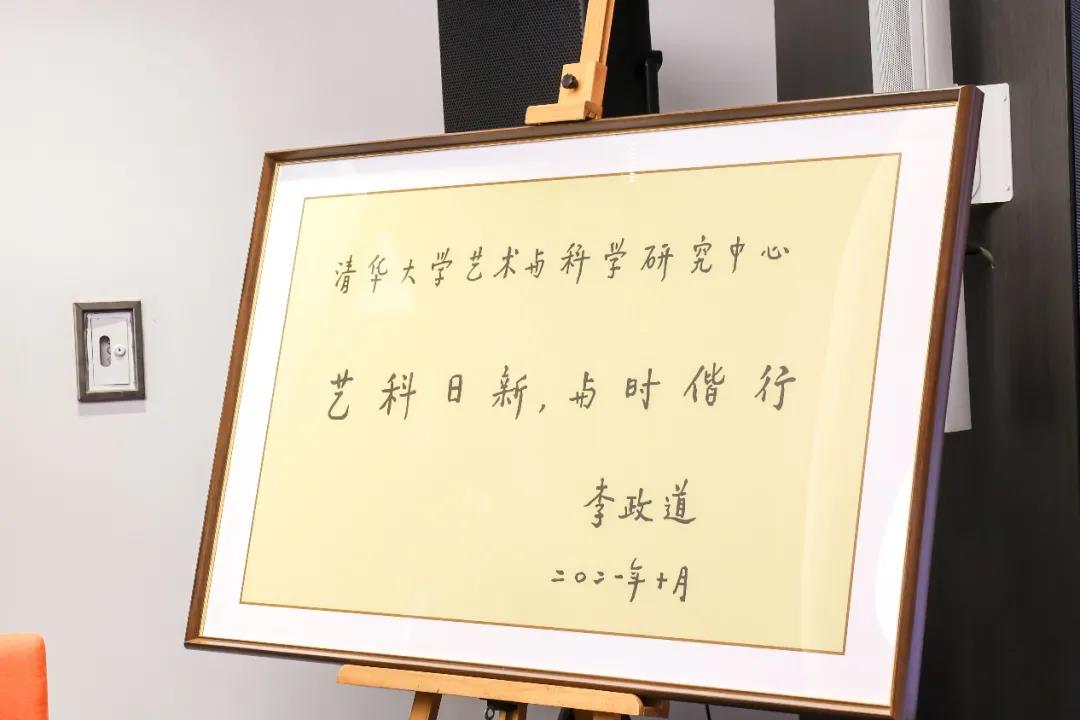 清华大学艺术与科学研究中心
艺科日新,与时偕行
李政道
二〇二一年十月